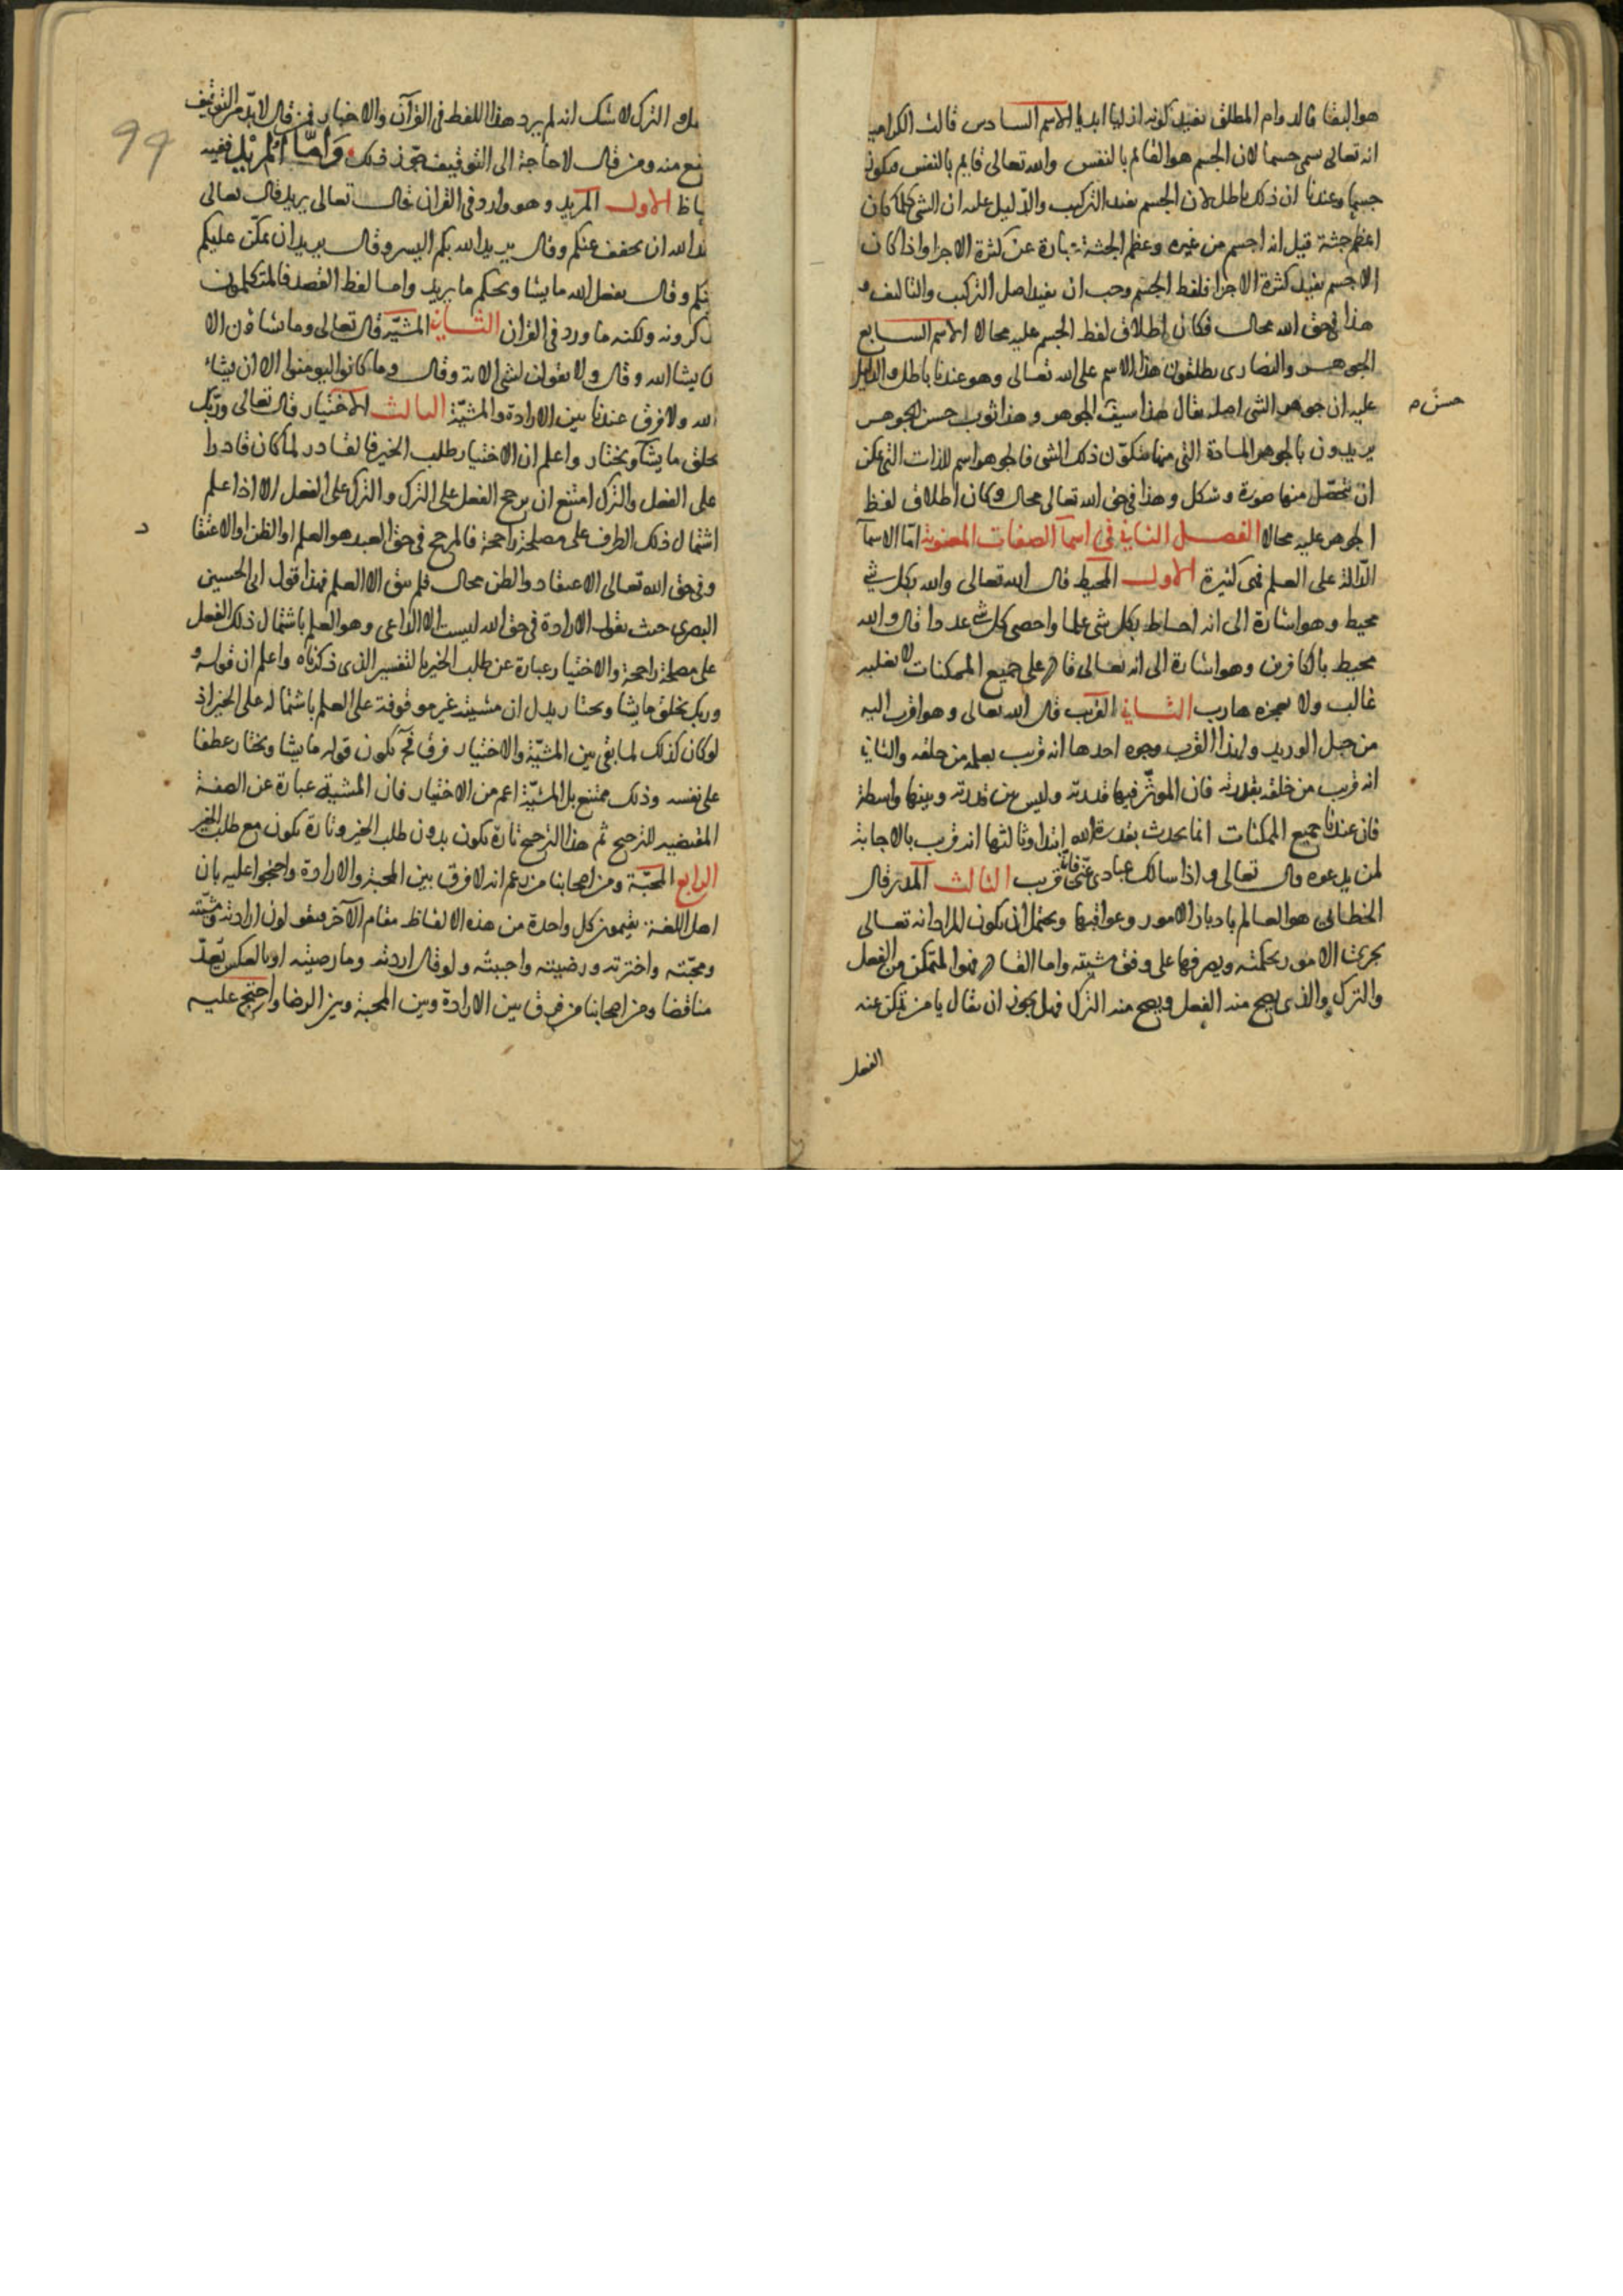 هو البقا فالدوام المطلق يفيد كونه ازليا ابديا الاسم السادس قالت الكراميه
انه تعالى سمى جسما لان الجسم هو القايم بالنفس والله تعالى قايم بالنفس فيكون
جسما وعندنا ان ذلك باطل لان الجسم يفيد التركيب والدّليل عليه ان الشى كلما كان
اعظم جثة قيل انه اجسم من غيره وعظم الجثة عبارة عن كثرة الاجزا واذا كان
الاجسم يفيد كثرة الاجزا فلفظ الجسم وجب ان يفيد اصل التركيب والتاليف و
هذا فى حق الله محال فكان اطلاق لفظ الجسم عليه محالا الاسم السابع
الجوهر والنصارى يطلقون هذا الاسم على الله تعالى وهو عندنا باطل والدليل
عليه ان جوهر الشى اصله يقال هذا سيف الجوهر وهذا ثوب حسن الجوهر
حسن م
يريدون بالجوهر المادة التى منها متكوّن ذلك الشى فالجوهر اسم للذات التى يمكن
ان يتحصّل منها صورة وشكل وهذا فى حق الله تعالى محال وكان اطلاق لفظ
الجوهر عليه محالا الفصل الثانى فى اسما الصفات المعنوية امّا الاسما
الدّالة على العلم فهى كثيرة الاول المحيط قال الله تعالى والله بكل شى
محيط وهو اشارة الى انه احاط بكل شى علما واحصى كل شى عددا قال والله
محيط بالكافرين وهو اشارة الى انه تعالى قادر على جميع الممكنات لا يغلبه
غالب ولا يعجزه هارب الثانى القريب قال الله تعالى وهو اقرب اليه
من حبل الوريد ولهذا القرب وجوه احدها انه قريب بعلمه من خلقه والثانى
انه قريب من خلقه بقدرته فان الموثّر فيها قدرته وليس بين قدرته وبينها واسطة
فان عندنا جميع الممكنات انما يحدث بقدرة الله ابتدا وثالثها انه قريب بالاجابة
لمن يدعوه قال تعالى واذا سالك عبادى عنّى فانّى قريب الثالث المدبر قال
الخطابى هو العالم بادبار الامور وعواقبها ويحتمل ان يكون المراد انه تعالى
يجريها الامور بحكمته ويصرفها على وفق مشيته واما القادر فهو المتمكن من الفعل
والترك والذى يصح منه الفعل ويصح منه الترك فهل يجوز ان يقال يا من تمكن عنه
الفعل
99
الترك لا شك انه لم يرد هذا اللفظ فى القرآن والاخبار فمن قال لا بدّ من التوقيف
منع منه ومن قال لا حاجة الى التوقيف جوّز ذلك وَامّا المرِيْد ففيه
الاول المريد وهو وارد فى القران قال تعالى يريد قال تعالى
الله ان يخفف عنكم وقال يريد الله بكم اليسر وقال يريد ان يمكّن عليكم
وقال يفعل الله ما يشا ويحكم ما يريد واما لفظ القصد فالمتكلمون
يذكرونه ولكنه ما ورد فى القران الثانى المشيّة قال تعالى وما تشاؤن الا
ان يشا الله وقال ولا تقولن لشى الاية وقال وما كانوا ليومنوا الا ان يشاء
الله ولا فرق عندنا بين الارادة والمشيّة الثالث الاختيار قال تعالى وربّك
يخلق ما يشآ ويختار واعلم ان الاختيار طلب الخير فالقادر لما كان قادرا
على الفعل والترك امتنع ان يرجح الفعل على الترك والترك على الفعل الا اذا علم
اشتمال ذلك الطرف على مصلحة راجحة فالمرجح فى حق العبد هو العلم او الظن او الاعتقا
د
وفى حق الله تعالى الاعتقاد والظن محال فلم يبق الا العلم فهذا قول ابى الحسين
البصرى حيث يقول الارادة فى حق الله ليست الا الداعى وهو العلم باشتمال ذلك الفعل
على مصلحة راجحة والاختيار عبارة عن طلب الخير بالتفسير الذى ذكرناه واعلم ان قوله و
وربك يخلق ما يشا ويختار يدل ان مشيته غير موقوفة على العلم باشتماله على الخير اذ
لو كان كذلك لما بقى بين المشيّة والاختيار فرق فح يكون قوله ما يشا ويختار عطفا
على نفسه وذلك ممتنع بل المشيّة اعم من الاختيار فان المشية عبارة عن الصفة
المقتضيه للترجيح ثم هذا الترجيح تارة يكون بدون طلب الخير وتارة يكون مع طلب الخير
الرابع المحبّة ومن اصحابنا من زعم انه لا فرق بين المحبة والارادة واحتجوا عليه بان
اهل اللغة يقيمون كل واحدة من هذه الالفاظ مقام الآخر فيقولون ارادته ومشيّته
ومحبّته واخترته ورضيته واحببته ولو قال اردته وما رضيته او بالعكس يعدّ
مناقضا ومن اصحابنا من فرق بين الارادة وبين المحبة وبين الرضا واحتج عليه